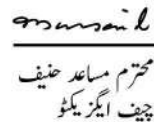 محترم مساعد حنیف
چیف ایگزیکٹو